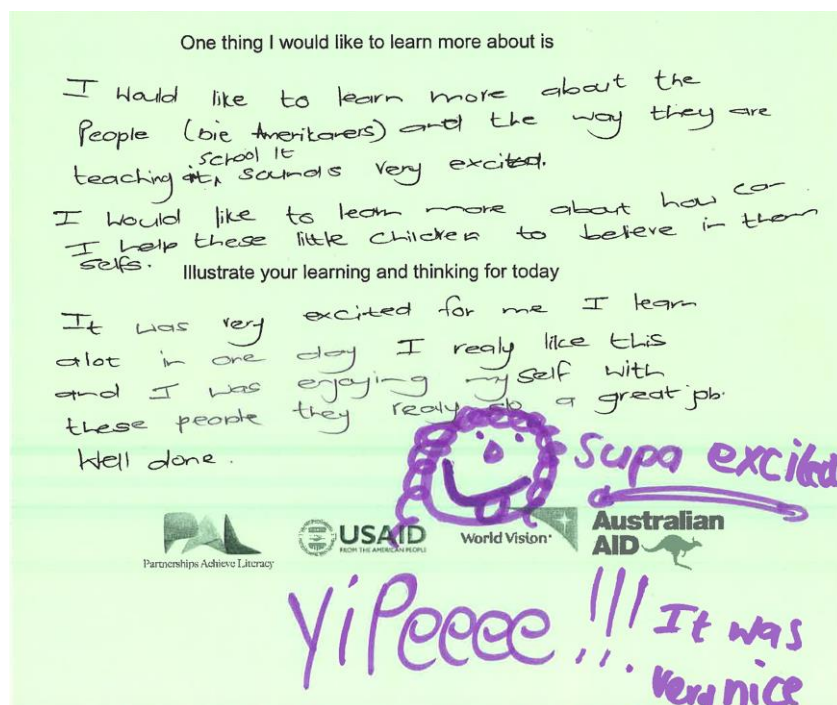 One thing I would like to learn more about is
I would like to learn more about the
People (die Amerikaners) and the way they are
school It
teaching sounds very excited.
I would like to learn more about how ca
I help these little children to believe in them
selfs.
Illustrate your learning and thinking for today
It was very excited for me I learn
alot in one day I realy like this
and I was enjoying myself with
these people they realy do a great job.
Well done.
supa excited
PAL
Partnerships Achieve Literacy
USAID
FROM THE AMERICAN PEOPLE
World Vision
Australian
AID
YiPeeee !!!
It was
very nice